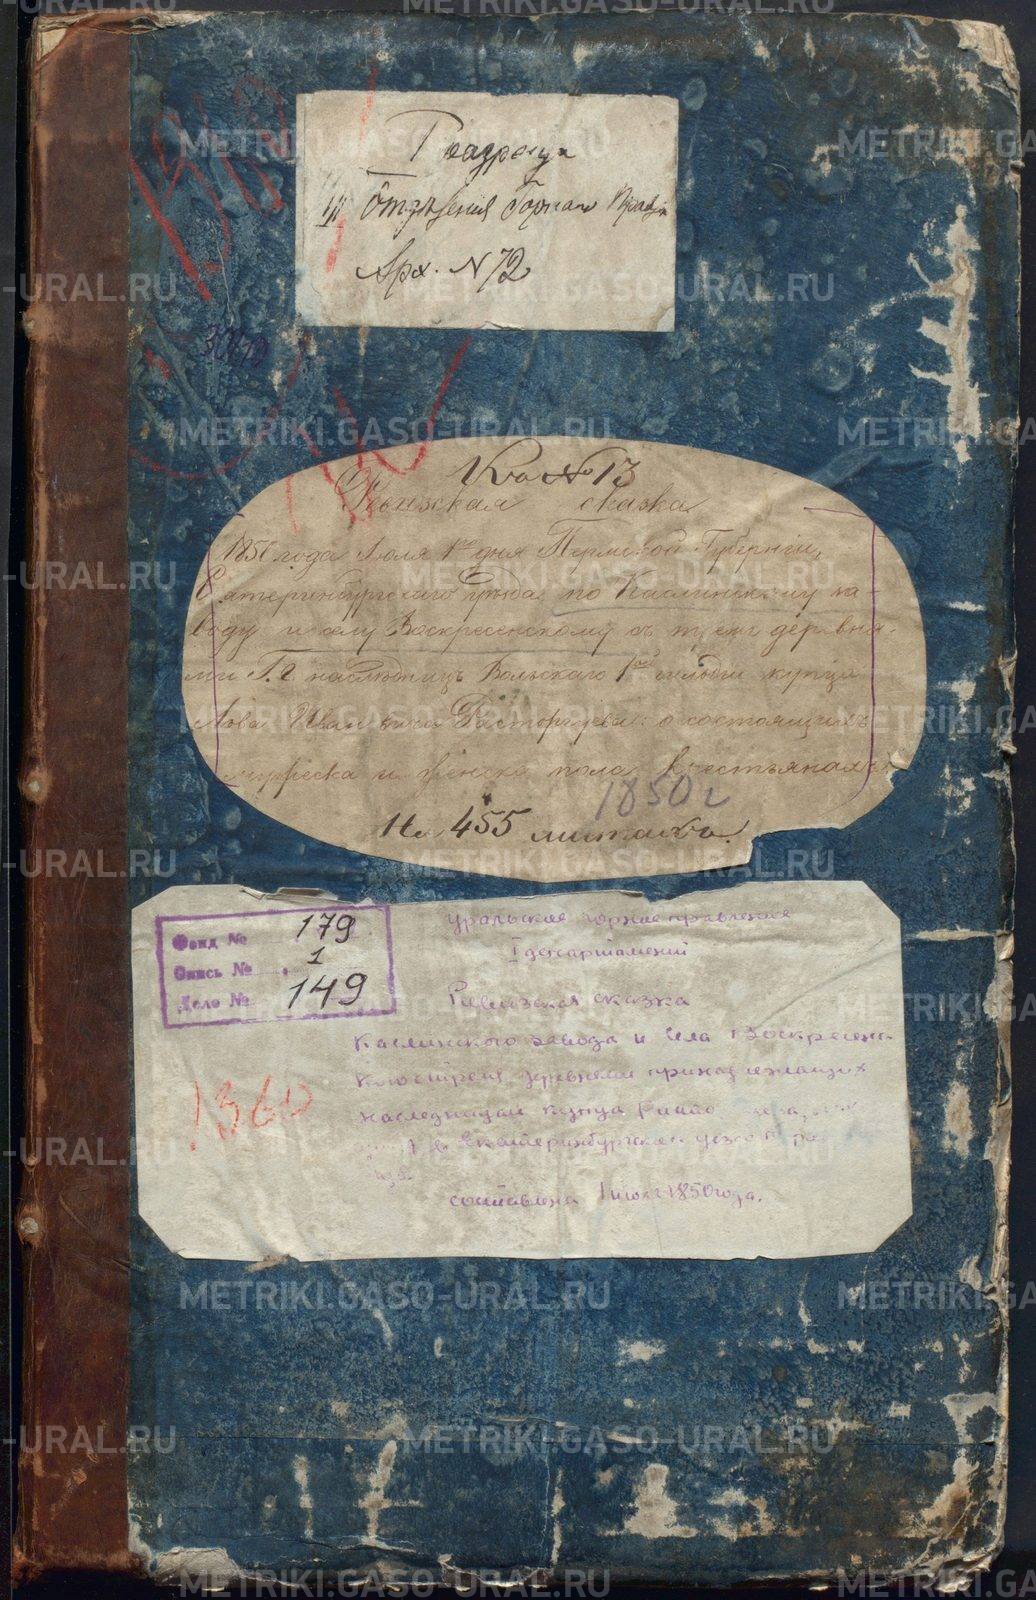 I разряда
III Отделения Горнаго Правл
Арх. N 72
К № 13
Ревизская сказка
1850 года Июля 1го дня Пермской Губернiи,
Екатеринбургскаго уѣзда по Каслинскому за-
воду и селу Воскресенскому съ тремя деревня-
ми Г.г. наслѣдницъ Вольскаго 1ой гильдiи купца
Льва Ивановича Расторгуева о состоящихъ
мужеска и женска пола крестьянахъ
1850 г
На 455 листахъ
Фонд № 179
Опись № 1
Дело № 149
Уральское горное правление
I департамент
Ревизская сказка
Каслинского завода и села Воскресенс-
кого с тремя деревнями принадлежащих
наследницам купца
в Екатеринбургском уезде
составлена 1 июля 1850 года.
1360
METRIKI.GASO-URAL.RU